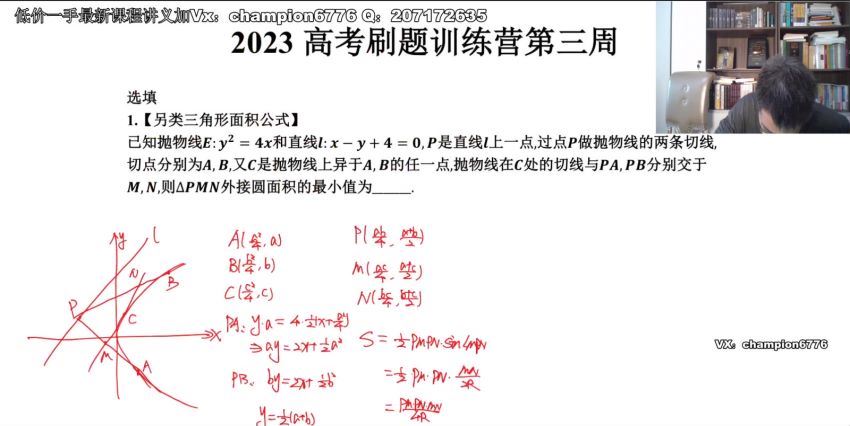 低价一手最新课程讲义加Vx：champion6776 Q：207172635
2023 高考刷题训练营第三周
选填
1.【另类三角形面积公式】
已知抛物线E: y² = 4x和直线l: x − y + 4 = 0, P是直线l上一点,过点P做抛物线的两条切线,
切点分别为A, B,又C是抛物线上异于A, B的任一点,抛物线在C处的切线与PA, PB分别交于
M, N,则ΔPMN外接圆面积的最小值为______.
y
l
N
B
P
C
x
M
A
A(a²/4, a)
B(b²/4, b)
C(c²/4, c)
PA: y·a = 4·½(x+a²/4)
⇒ ay = 2x+½a²
PB: by = 2x+½b²
y=½(a+b)
P(ab/4, (a+b)/2)
M(ac/4, (a+c)/2)
N(bc/4, (b+c)/2)
S = ½ PM·PN·sin∠MPN
= ½ PM·PN· MN/2R
= PM·PN·MN/4R
VX：champion6776